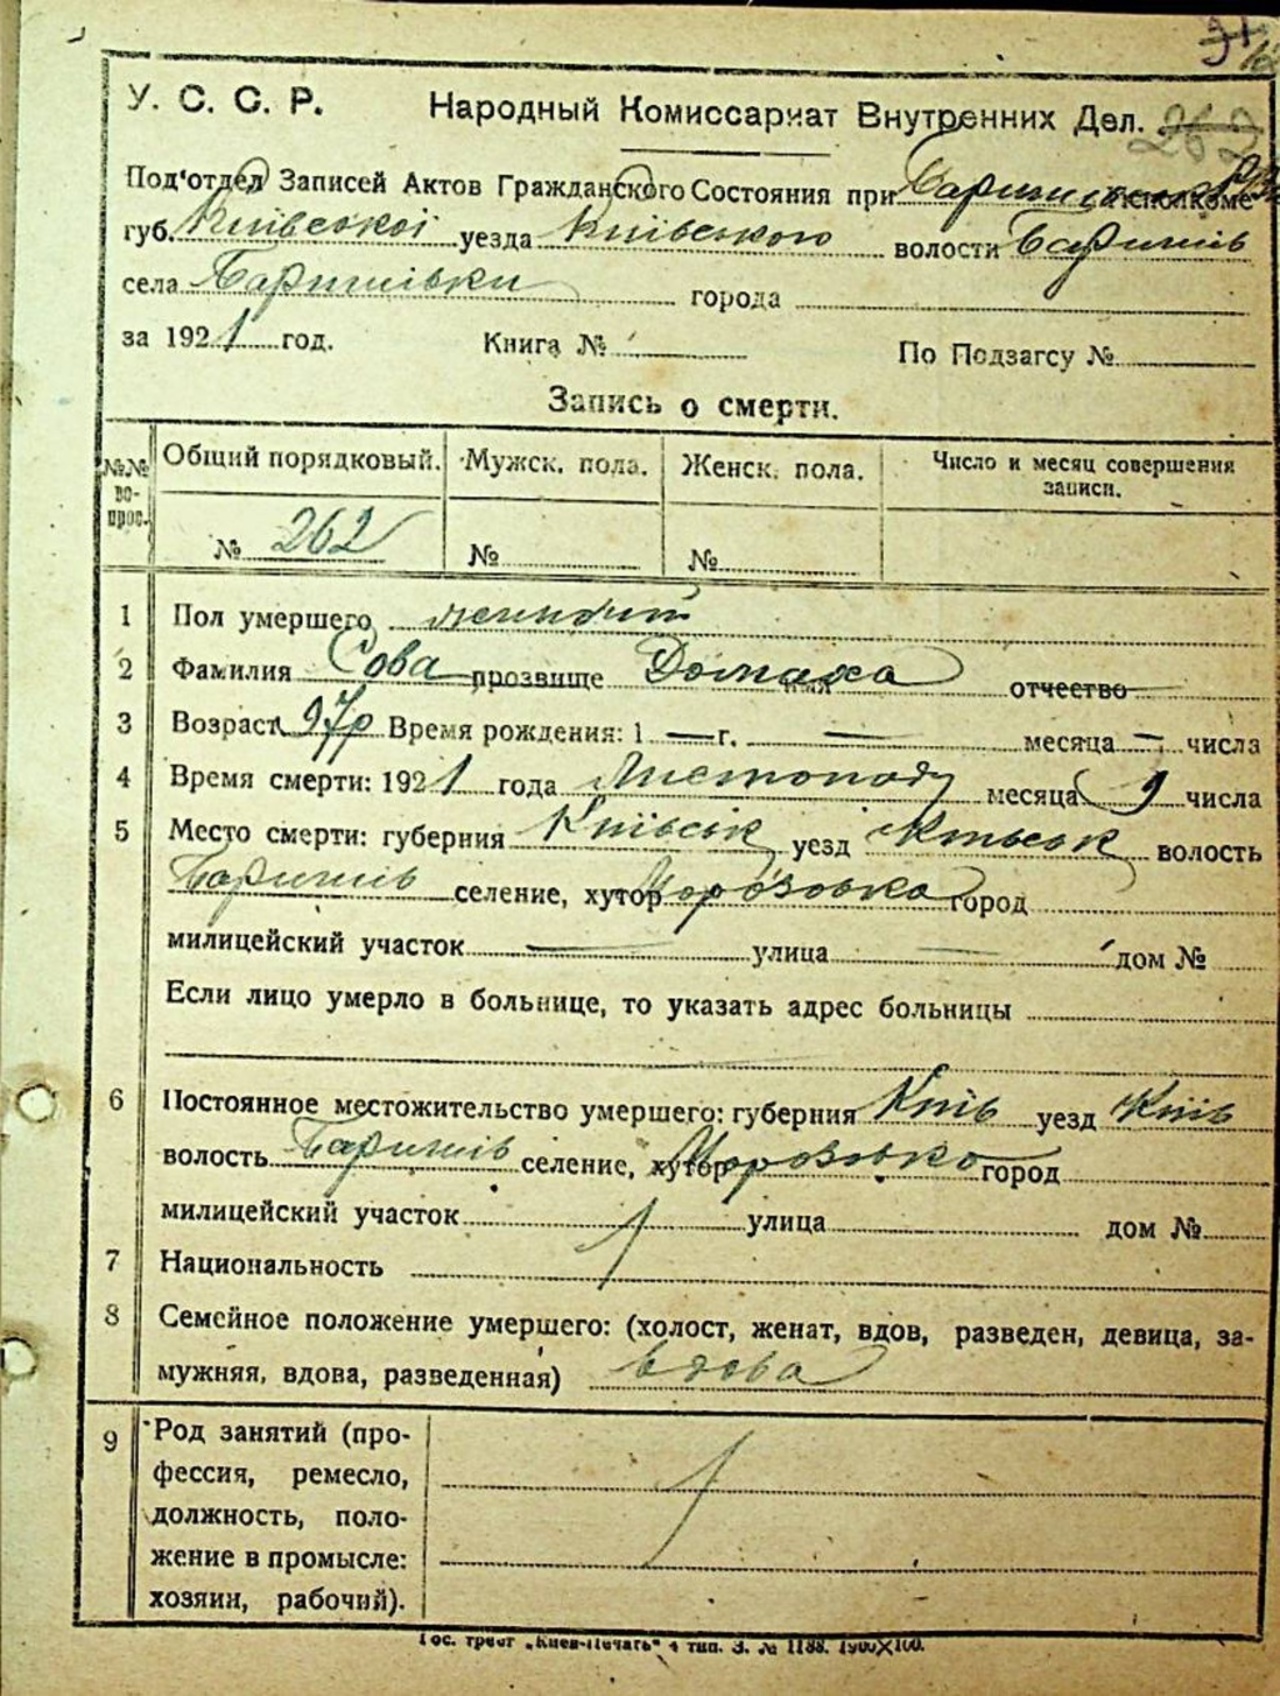 У. С. С. Р. Народный Комиссариат Внутренних Дел. 262
Под'отдел Записей Актов Гражданского Состояния при исполкоме
губ. Київської уезда Київського волости Баришів
села Баришівки города
за 1921 год. Книга № По Подзагсу №
Запись о смерти.
№№ вопрос. Общий порядковый. Мужск. пола. Женск. пола. Число и месяц совершения
записи.
№ 262 № №
1 Пол умершего
2 Фамилия Сова прозвище Домаха имя отчество —
3 Возраст 97р Время рождения: 1 — г. — месяца — числа
4 Время смерти: 1921 года Листопад месяца 9 числа
5 Место смерти: губерния Київськ уезд Київськ волость
Баришів селение, хутор Морозовка город
милицейский участок — улица — дом №
Если лицо умерло в больнице, то указать адрес больницы
6 Постоянное местожительство умершего: губерния Київ уезд Київ
волость Баришів селение, хутор Морозовка город
милицейский участок улица дом №
7 Национальность
8 Семейное положение умершего: (холост, женат, вдов, разведен, девица, за-
мужняя, вдова, разведенная) вдова
9 Род занятий (про-
фессия, ремесло,
должность, поло-
жение в промысле:
хозяин, рабочий).
Гос. трест „Киев-Печать" 4 тип. З. № 1188. 1900×100.